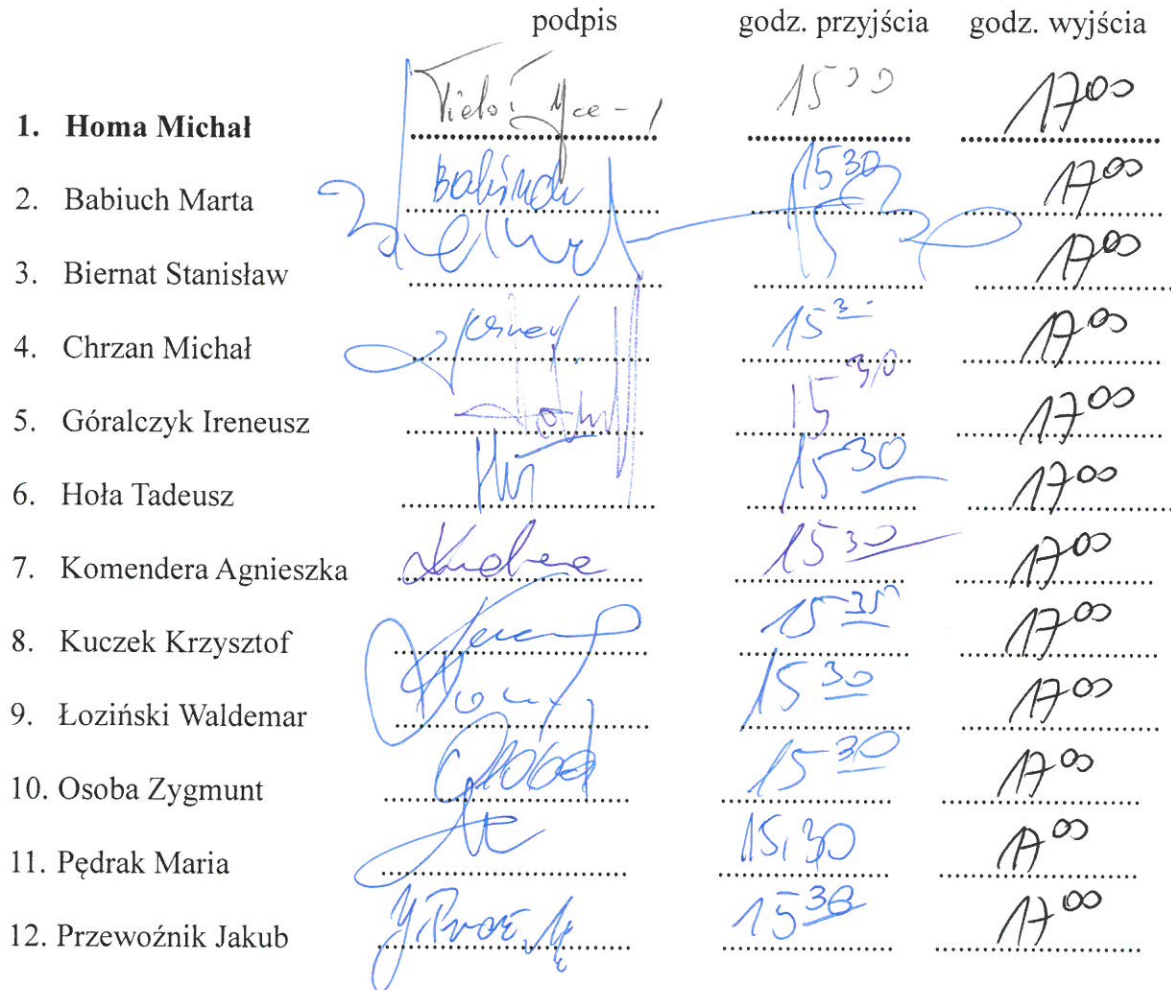 podpis godz. przyjścia godz. wyjścia
1. Homa Michał 17⁰⁰
2. Babiuch Marta 15³⁰ 17⁰⁰
3. Biernat Stanisław 17⁰⁰
4. Chrzan Michał 17⁰⁰
5. Góralczyk Ireneusz 15³⁰ 17⁰⁰
6. Hoła Tadeusz 15³⁰ 17⁰⁰
7. Komendera Agnieszka 15³⁰ 17⁰⁰
8. Kuczek Krzysztof 17⁰⁰
9. Łoziński Waldemar 15³⁰ 17⁰⁰
10. Osoba Zygmunt Osoba 15³⁰ 17⁰⁰
11. Pędrak Maria 15,30 17⁰⁰
12. Przewoźnik Jakub 15³⁰ 17⁰⁰